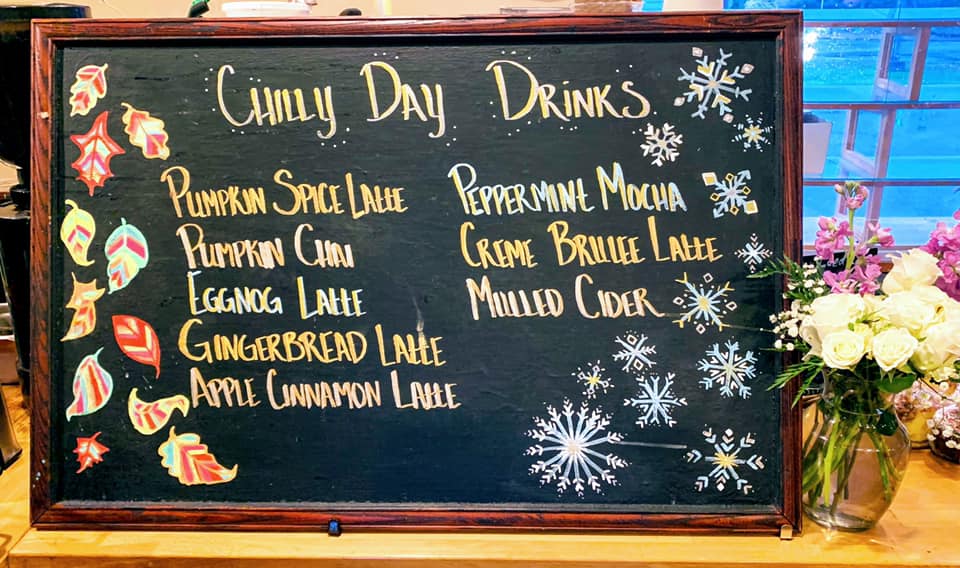 Chilly Day Drinks
Pumpkin Spice Latte
Pumpkin Chai
Eggnog Latte
Gingerbread Latte
Apple Cinnamon Latte
Peppermint Mocha
Creme Brulee Latte
Mulled Cider